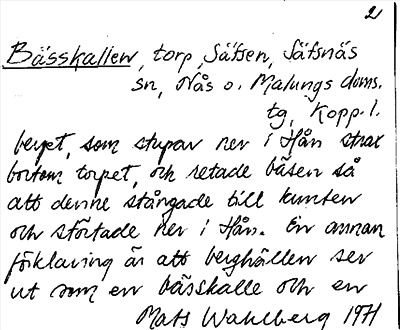 2
Bässkallen, torp, Säfsen, Säfsnäs
sn, Nås o. Malungs doms.
tg, Kopp. l.
berget, som stupar ner i Hån strax
bortom torpet, och retade bäsen så
att denne stångade till kunten
och störtade ner i Hån. En annan
förklaring är att berghällen ser
ut som en bässkalle och en
Mats Wahlberg 1971